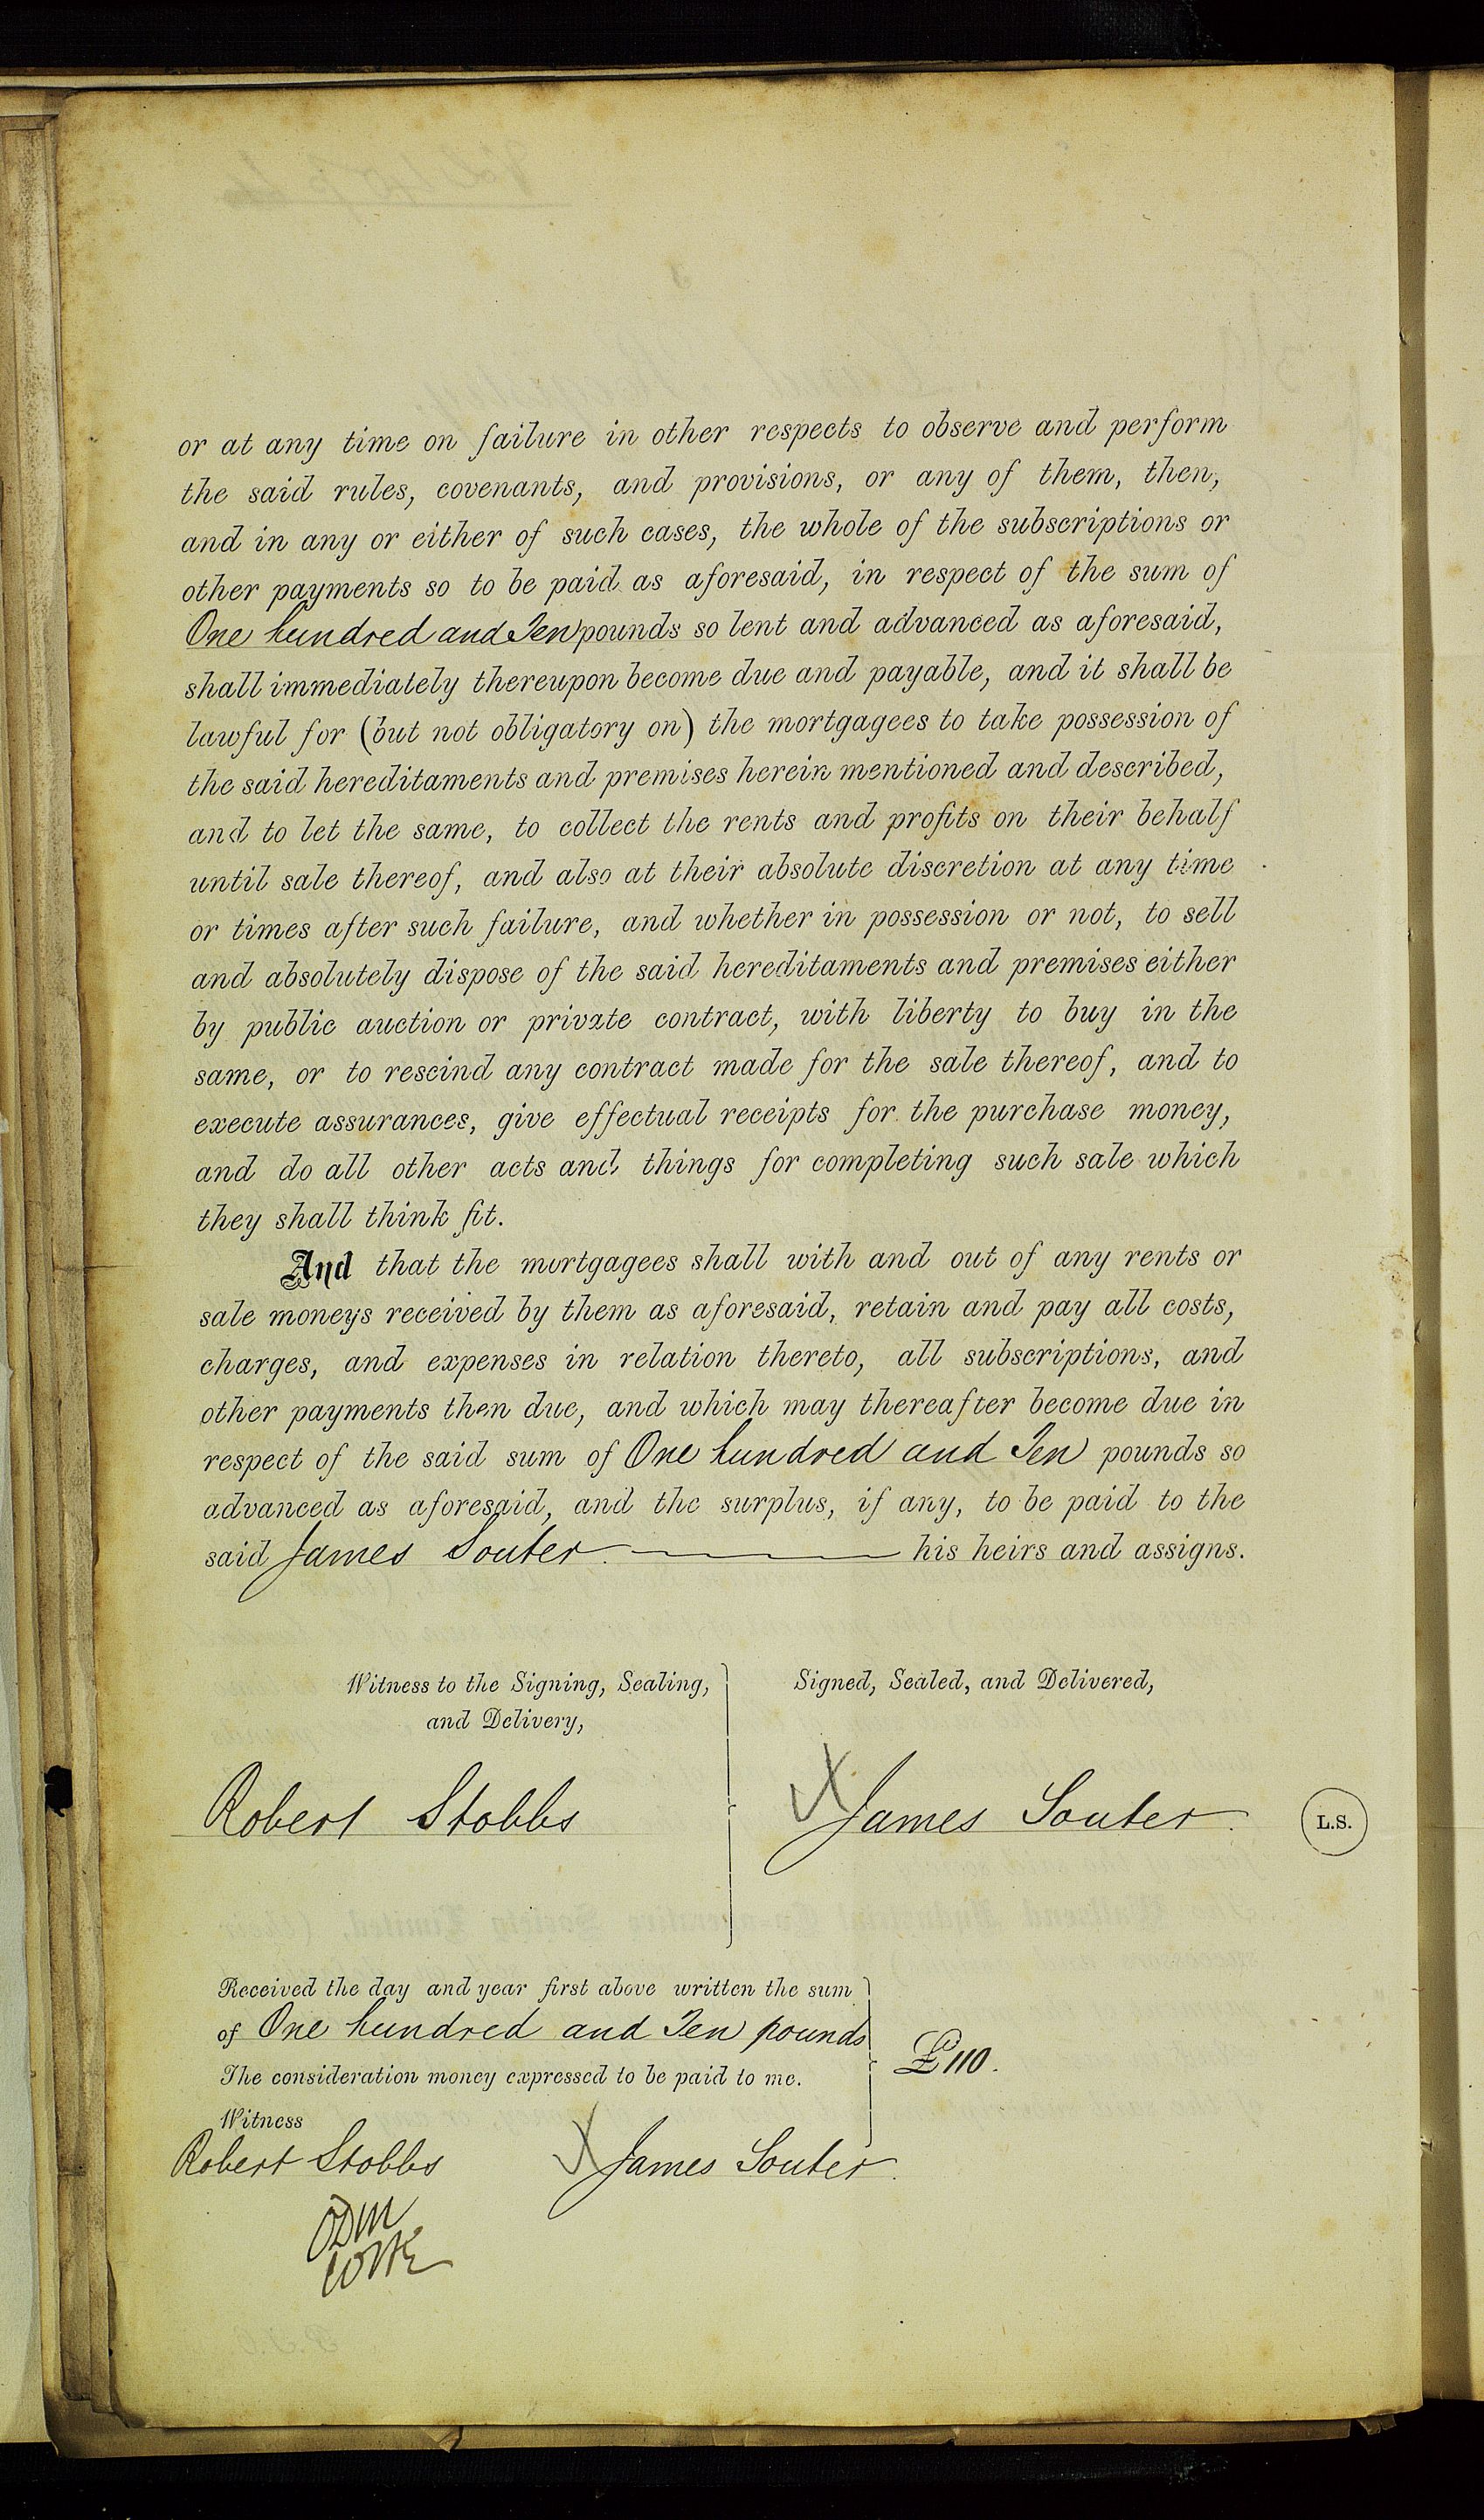 or at any time on failure in other respects to observe and perform
the said rules, covenants, and provisions, or any of them, then,
and in any or either of such cases, the whole of the subscriptions or
other payments so to be paid as aforesaid, in respect of the sum of
One hundred and Ten pounds so lent and advanced as aforesaid,
shall immediately thereupon become due and payable, and it shall be
lawful for (but not obligatory on) the mortgagees to take possession of
the said hereditaments and premises herein mentioned and described,
and to let the same, to collect the rents and profits on their behalf
until sale thereof, and also at their absolute discretion at any time
or times after such failure, and whether in possession or not, to sell
and absolutely dispose of the said hereditaments and premises either
by public auction or private contract, with liberty to buy in the
same, or to rescind any contract made for the sale thereof, and to
execute assurances, give effectual receipts for the purchase money,
and do all other acts and things for completing such sale which
they shall think fit.
And that the mortgagees shall with and out of any rents or
sale moneys received by them as aforesaid, retain and pay all costs,
charges, and expenses in relation thereto, all subscriptions, and
other payments then due, and which may thereafter become due in
respect of the said sum of One hundred and Ten pounds so
advanced as aforesaid, and the surplus, if any, to be paid to the
said James Souter his heirs and assigns.
Witness to the Signing, Sealing,
and Delivery,
Robert Stobbs
Signed, Sealed, and Delivered,
X James Souter
L.S.
Received the day and year first above written the sum
of One hundred and Ten pounds
The consideration money expressed to be paid to me.
£110.
Witness
Robert Stobbs
X James Souter